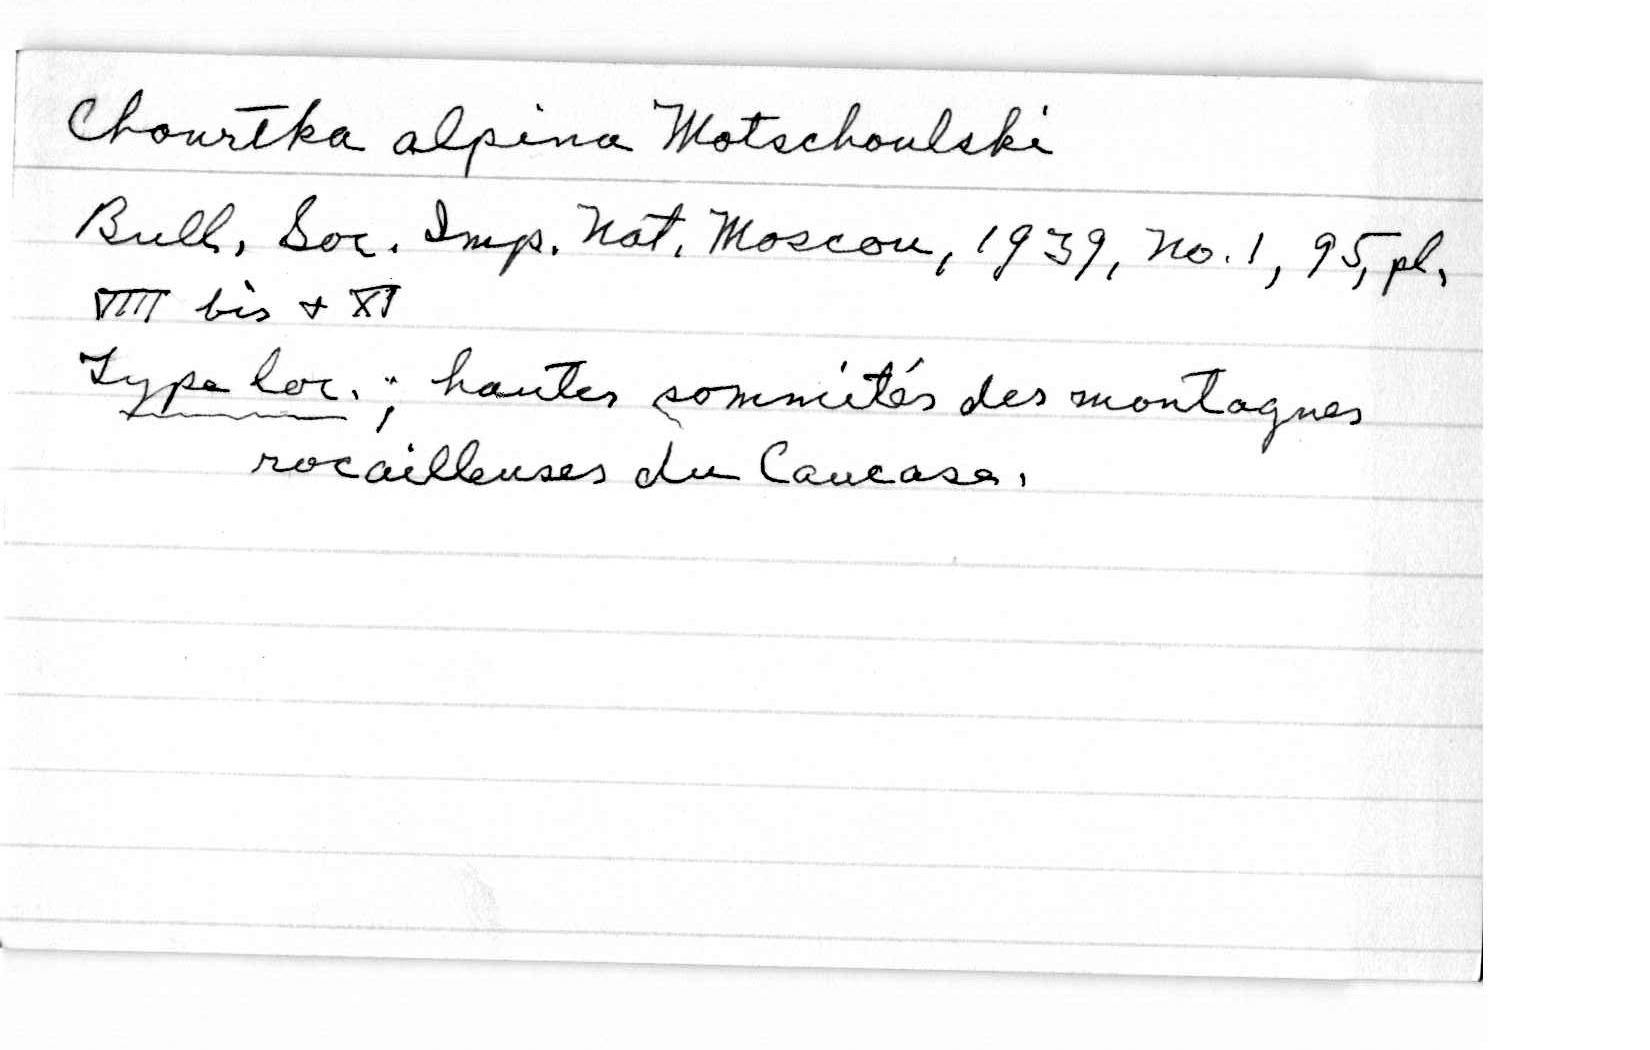 Chourtka alpina Motschoulski
Bull. Soc. Imp. Nat. Moscou, 1939, no. 1, 95, pl.
VIII bis + XI
Type loc.; hautes sommités des montagnes
rocailleuses du Caucase.